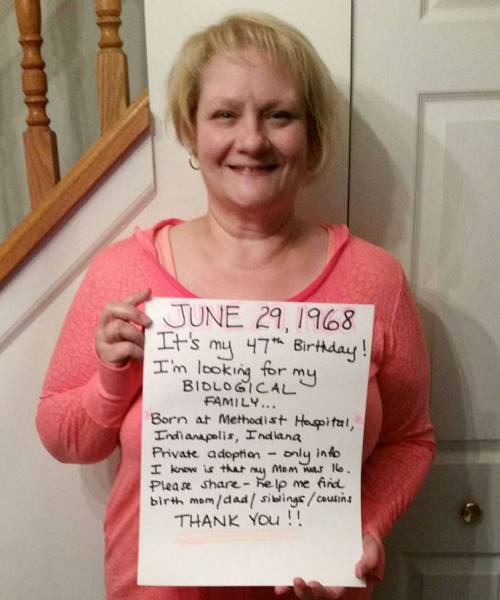 JUNE 29, 1968
It's my 47th Birthday!
I'm looking for my
BIOLOGICAL
FAMILY...
Born at Methodist Hospital,
Indianapolis, Indiana
Private adoption - only info
I know is that my Mom was 16.
Please share - help me find
birth mom/dad/siblings/cousins
THANK YOU!!